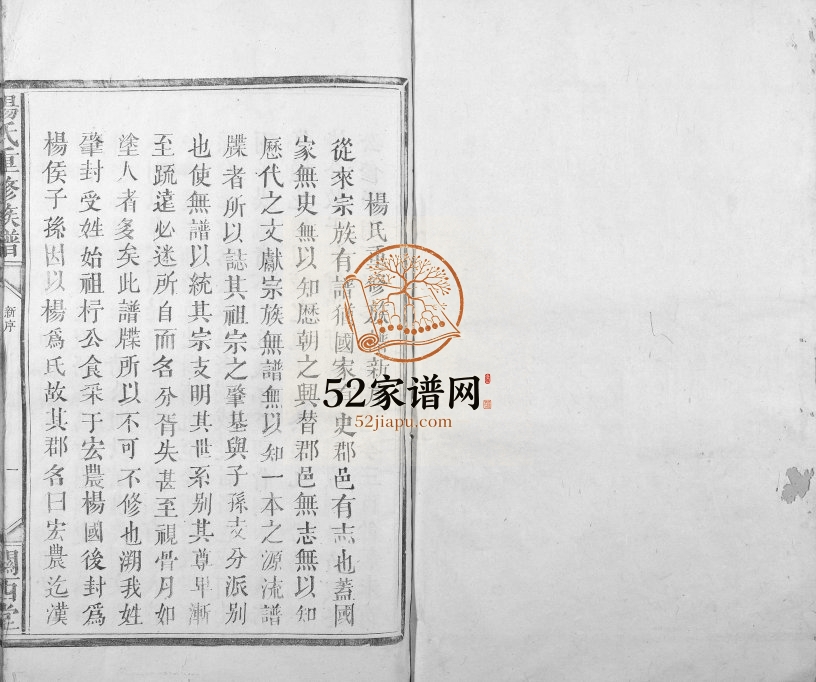 楊氏重修族譜新序
從來宗族有譜猶國家有史郡邑有志也蓋國
家無史無以知歷朝之興替郡邑無志無以知
歷代之文獻宗族無譜無以知一本之源流譜
牒者所以誌其祖宗之肇基與子孫支分派別
也使無譜以統其宗支明其世系別其尊卑漸
至疏遠必迷所自而名分胥失甚至視骨月如
塗人者多矣此譜牒所以不可不修也溯我姓
肇封受姓始祖杼公食采于宏農楊國後封爲
楊侯子孫因以楊爲氏故其郡名曰宏農迄漢
楊氏重修族譜
新序
一
關西堂
52家谱网
52jiapu.com